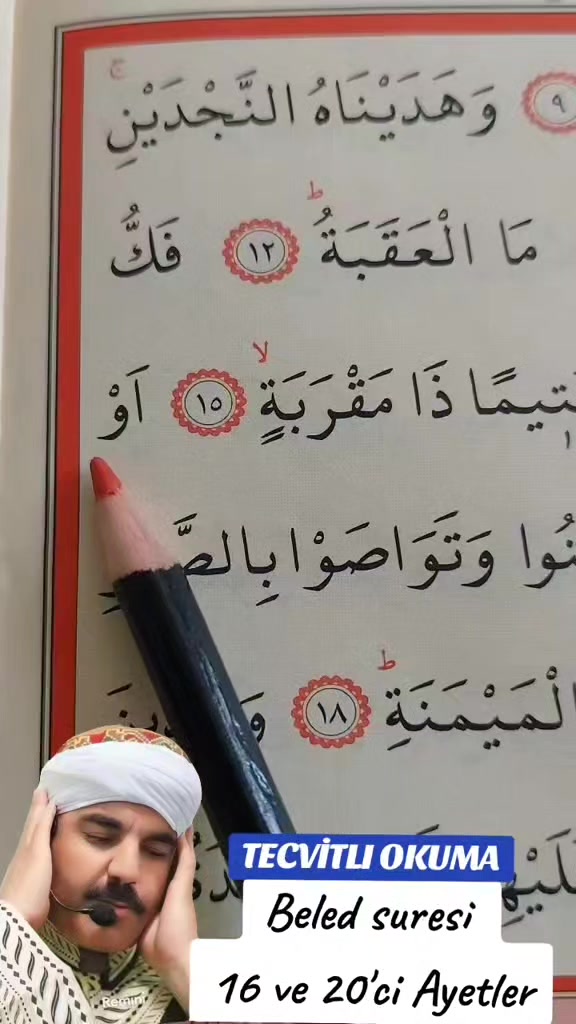 ج
وَهَدَيْنَاهُ النَّجْدَيْنِ
٩
ط
مَا الْعَقَبَةُ ١٢ فَكُّ
لا
يَتِيمًا ذَا مَقْرَبَةٍ ١٥ اَوْ
وَتَوَاصَوْا
الْمَيْمَنَةِ ١٨
ط
TECVİTLI OKUMA
Beled suresi
16 ve 20'ci Ayetler
Remini